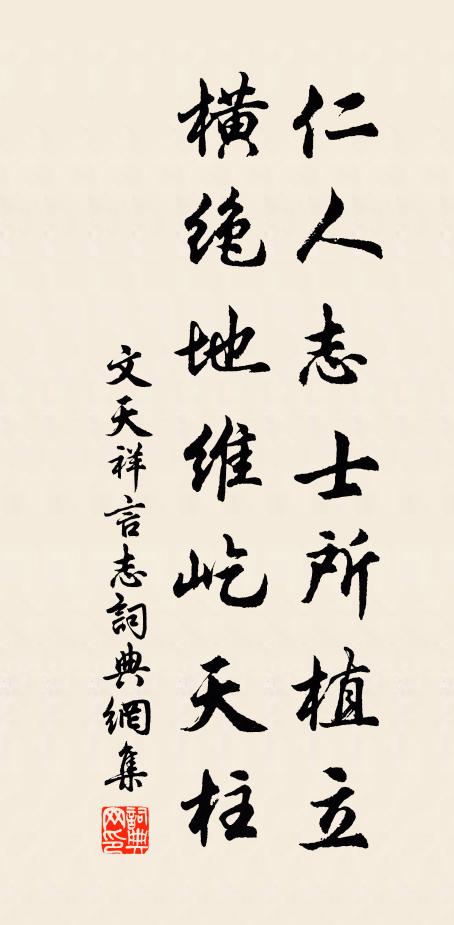 仁人志士所植立
橫絕地維屹天柱
文天祥言志詞典網集
詞典网印